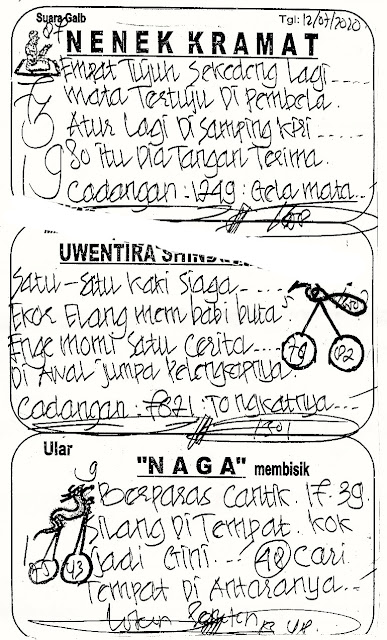 Suara Gaib
Tgl: 12/07/2020
NENEK KRAMAT
Empat Tujuh Sekedeng Lagi ----
Mata Tertuju Di Pembela.
Atur Lagi Di Samping Kiri -----
80 itu Dia Tangan Terima.
Cadangan : 1249 : Gela mata...
UWENTIRA
Satu - Satu Kaki Siaga ----
Ekor Elang mem babi buta.
Enge momi Satu Cerita ----
Di Awal jumpa Pelengkapnya.
79
Cadangan : 7821 : Tongkatnya ---
1301
Ular
"NAGA" membisik
Berparas Cantik . 17.39.
Silang Di Tempat. kok
Jadi Gini --- 48 Cari
43
Tempat Di Antaranya --